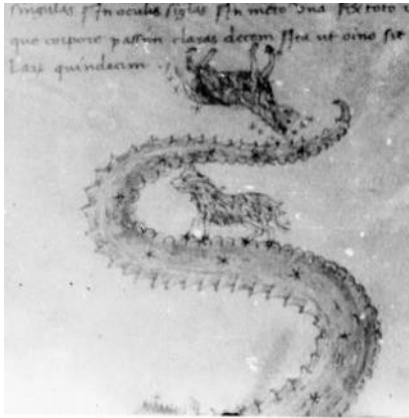 singulas In oculis siglas In mēto una toto
que corpore passim claras decem Ita ut oīno sīt
quindecim